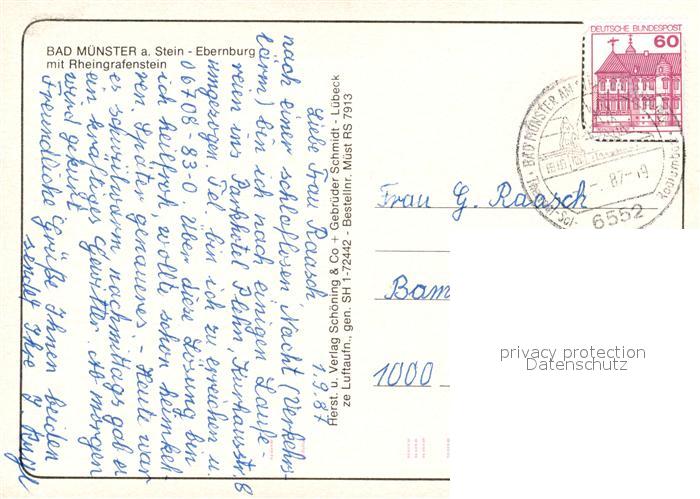 BAD MÜNSTER a. Stein - Ebernburg
mit Rheingrafenstein
1.9.87
Liebe Frau Raasch,
nach einer schlaflosen Nacht (Verkehrs-
lärm) bin ich nach einigen Laufe-
reien ins Parkhotel Plehn, Kurhausstr. 8
umgezogen. Tel. bin ich zu erreichen u.
06708-83-0 Über diese Lösung bin
ich heilfroh, wollte schon heimkeh-
ren. Später genaueres - Heute war
es schwülwarm, nachmittags gab es
ein kräftiges Gewitter. Ab morgen
wird gekurt.
Freundliche Grüße Ihnen beiden
sendet Ihre
Herst. u. Verlag Schöning & Co + Gebrüder Schmidt - Lübeck
ze Luftaufn., gen. SH 1-72442 - Bestellnr. Müst RS 7913
DEUTSCHE BUNDESPOST
60
BAD MÜNSTER AM
87-19
6552
Frau G. Raasch
1000
privacy protection
Datenschutz